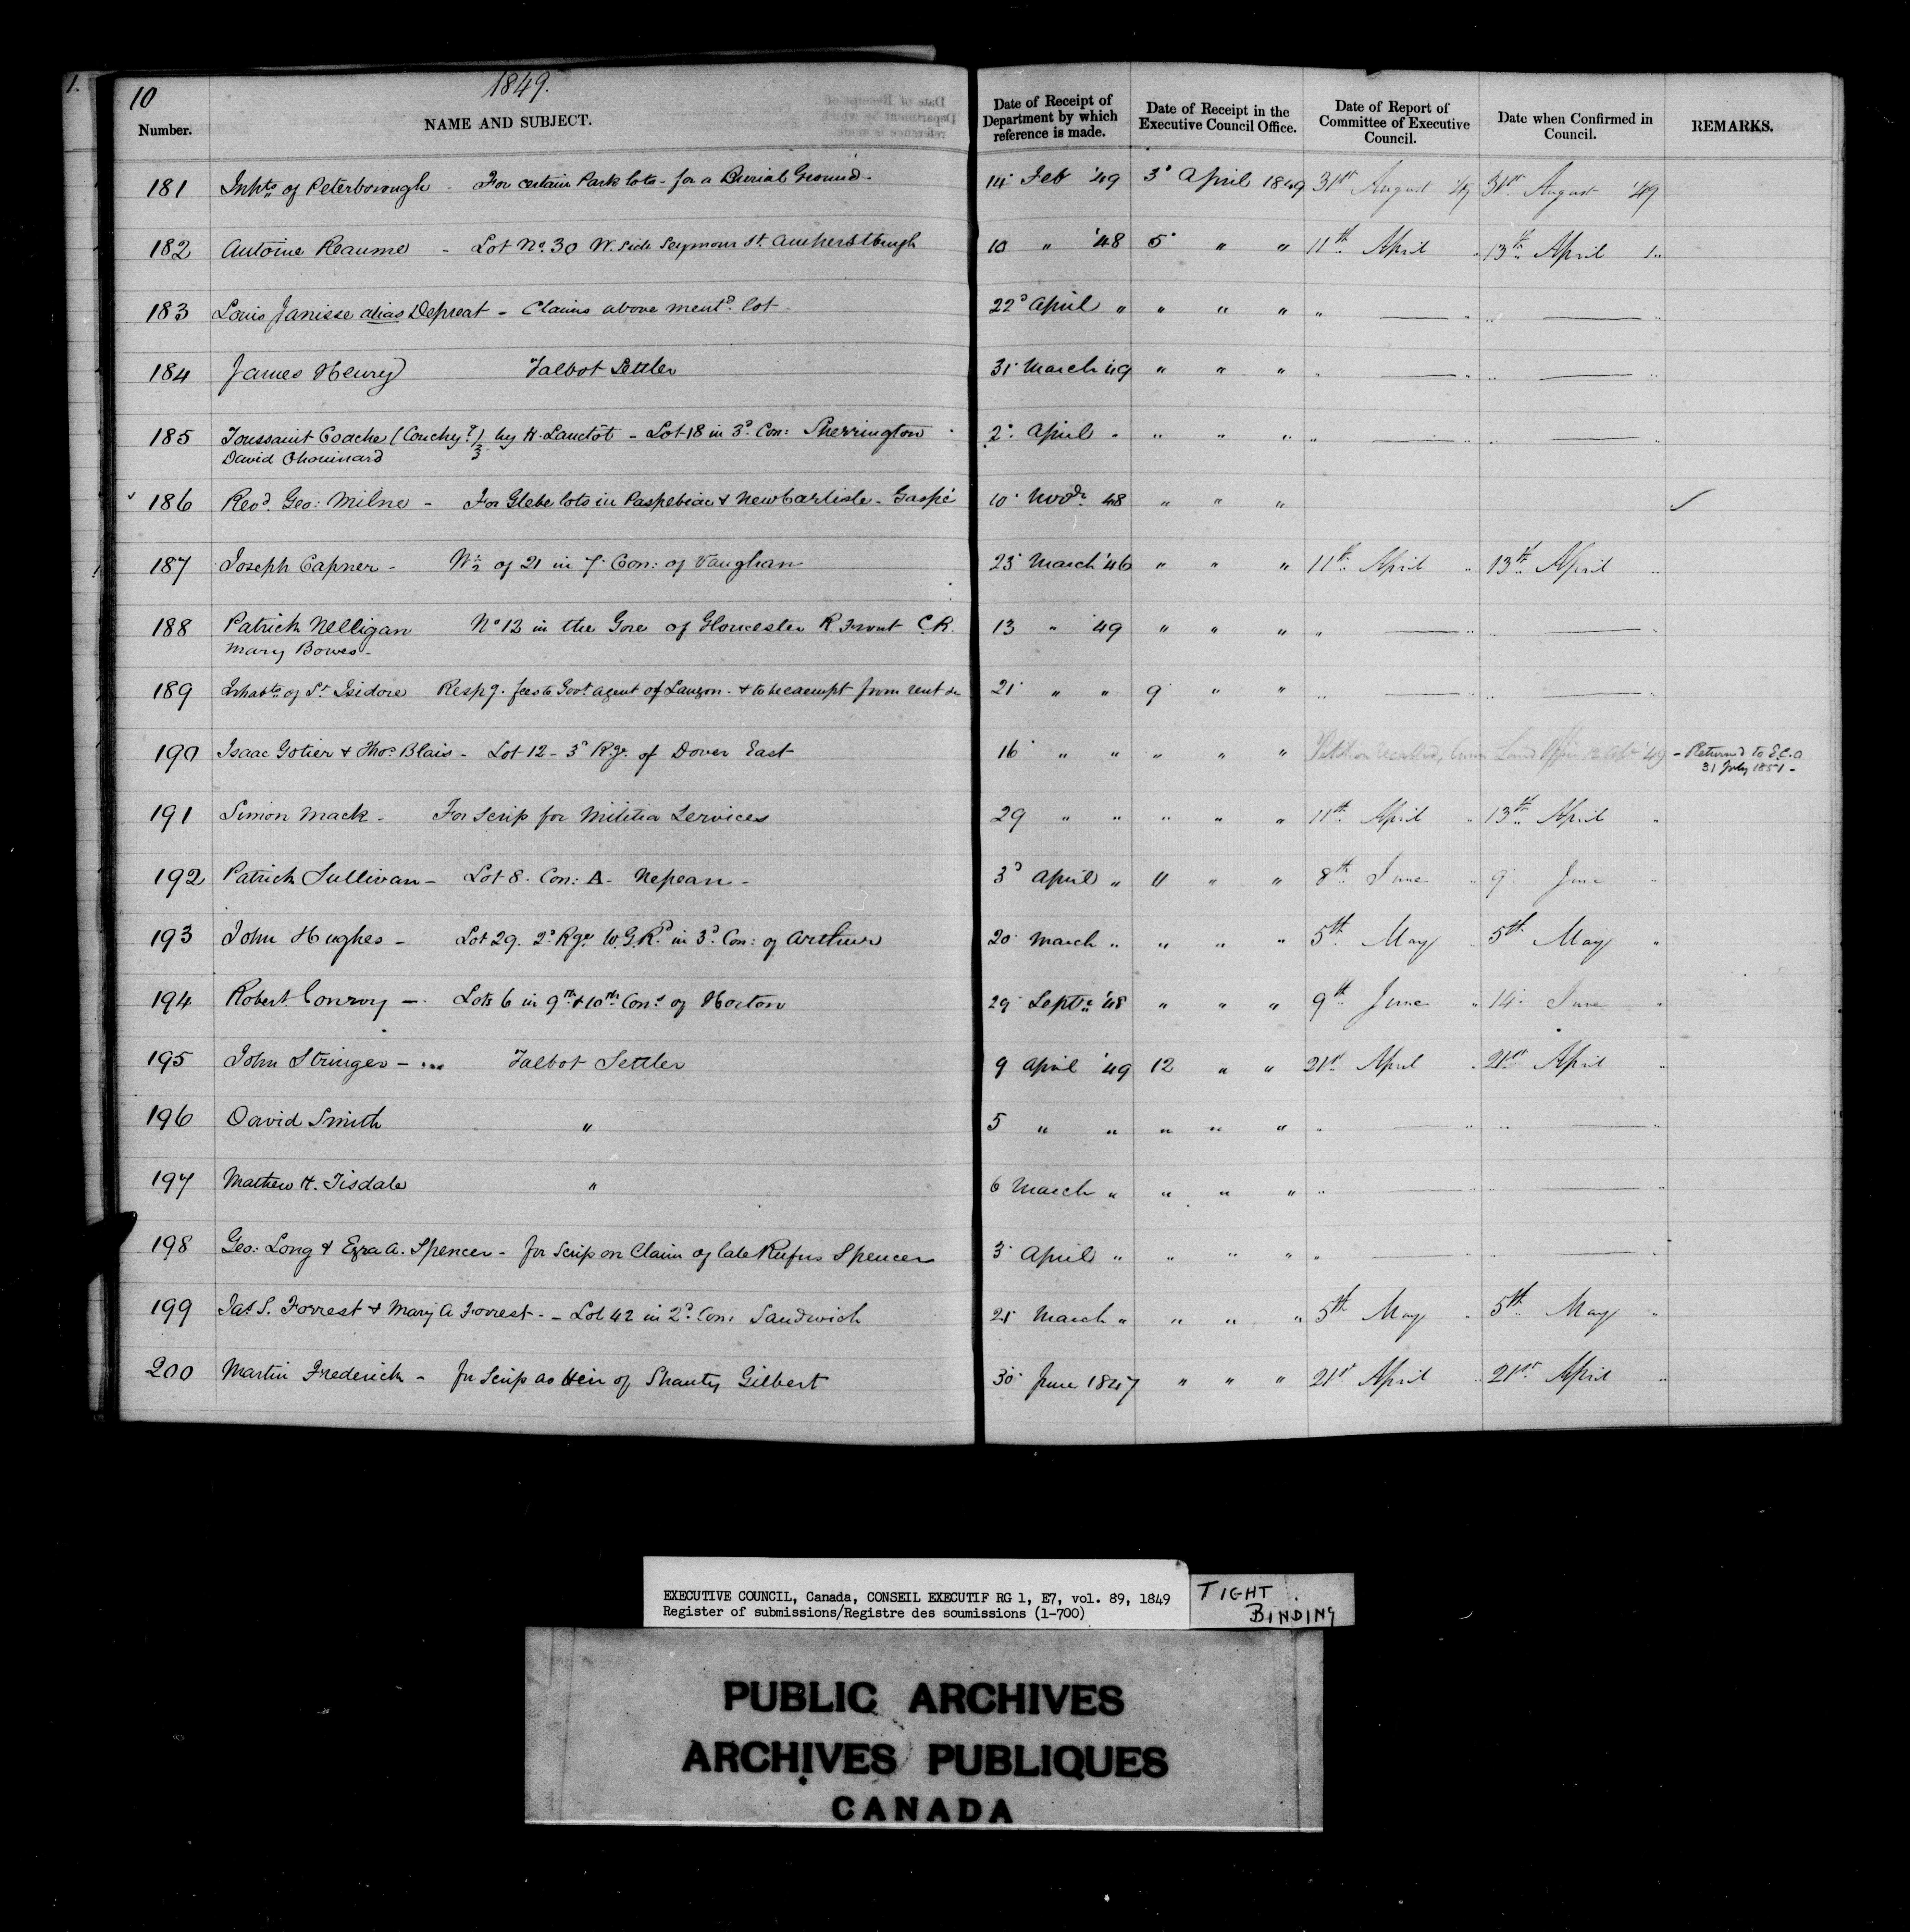 1.
10
1849.
Number. NAME AND SUBJECT. Date of Receipt of Department by which reference is made. Date of Receipt in the Executive Council Office. Date of Report of Committee of Executive Council. Date when Confirmed in Council. REMARKS.
181 Inhts of Peterborough - For certain Park lots - for a Burial Ground - 14 Feb '49 3d April 1849 31st August '49 31st August '49
182 Antoine Reaume - Lot No. 30 W. Side Seymour St. Amherstburgh 10 " '48 5 " " 11th April " 13th April "
183 Louis Janisse alias Depreat - Claims above mentd. lot - 22d April " " " " " — " " — "
184 James Henry Talbot Settler 31 March '49 " " " " — " " — "
185 Toussaint Coache (Conchy?) by H. Lanctot - Lot 18 in 3d. Con: Sherrington 2d. April " " " " " — " " — "
David Chouinard
186 Revd. Geo: Milne - For Glebe lots in Paspebiac & New Carlisle - Gaspé 10 Novr. 48 " " " ✓
187 Joseph Capner - W½ of 21 in 7 Con: of Vaughan 23 March '46 " " " 11th April " 13th April "
188 Patrick Nelligan No 13 in the Gore of Gloucester R. Front C.R. 13 " 49 " " " " — " " — "
Mary Bowes -
189 Inhabts of St Isidore Respg. fees to Govt agent of Lauzon - & to be exempt from rent &c 21 " " 9 " " " — " " — "
190 Isaac Gotier & Thos. Blais - Lot 12 - 3d Rge. of Dover East 16 " " " " " Petition Land Office '49 - Returnd to E.C.O
31 July 1851 -
191 Simon Mack - For Scrip for Militia Services 29 " " " " " 11th April " 13th April "
192 Patrick Sullivan - Lot 8. Con: A - Nepean - 3d April " 11 " " 8th June " 9 June "
193 John Hughes - Lot 29. 2d. Rge. W.G.Rd in 3d. Con: of Arthur 20 March " " " " 5th May " 5th May "
194 Robert Conroy - Lots 6 in 9th & 10th Cons of Horton 29 Septr '48 " " " 9th June " 14 June "
195 John Stringer - Talbot Settler 9 April '49 12 " " 21st April " 21st April "
196 David Smith " 5 " " " " " " — " " — "
197 Mathew H. Tisdale " 6 March " " " " " — " " — "
198 Geo: Long & Ezra A. Spencer - for Scrip on Claim of late Rufus Spencer 3 April " " " " " — " " — "
199 Jas. S. Forrest & Mary A Forrest - - Lot 42 in 2d. Con: Sandwich 21 March " " " " 5th May " 5th May "
200 Martin Frederick - for Scrip as Heir of Shanty Gilbert 30 June 1847 " " " 21st April " 21st April "
EXECUTIVE COUNCIL, Canada, CONSEIL EXECUTIF RG 1, E7, vol. 89, 1849
Register of submissions/Registre des soumissions (1-700)
TIGHT
BINDING
PUBLIC ARCHIVES
ARCHIVES PUBLIQUES
CANADA